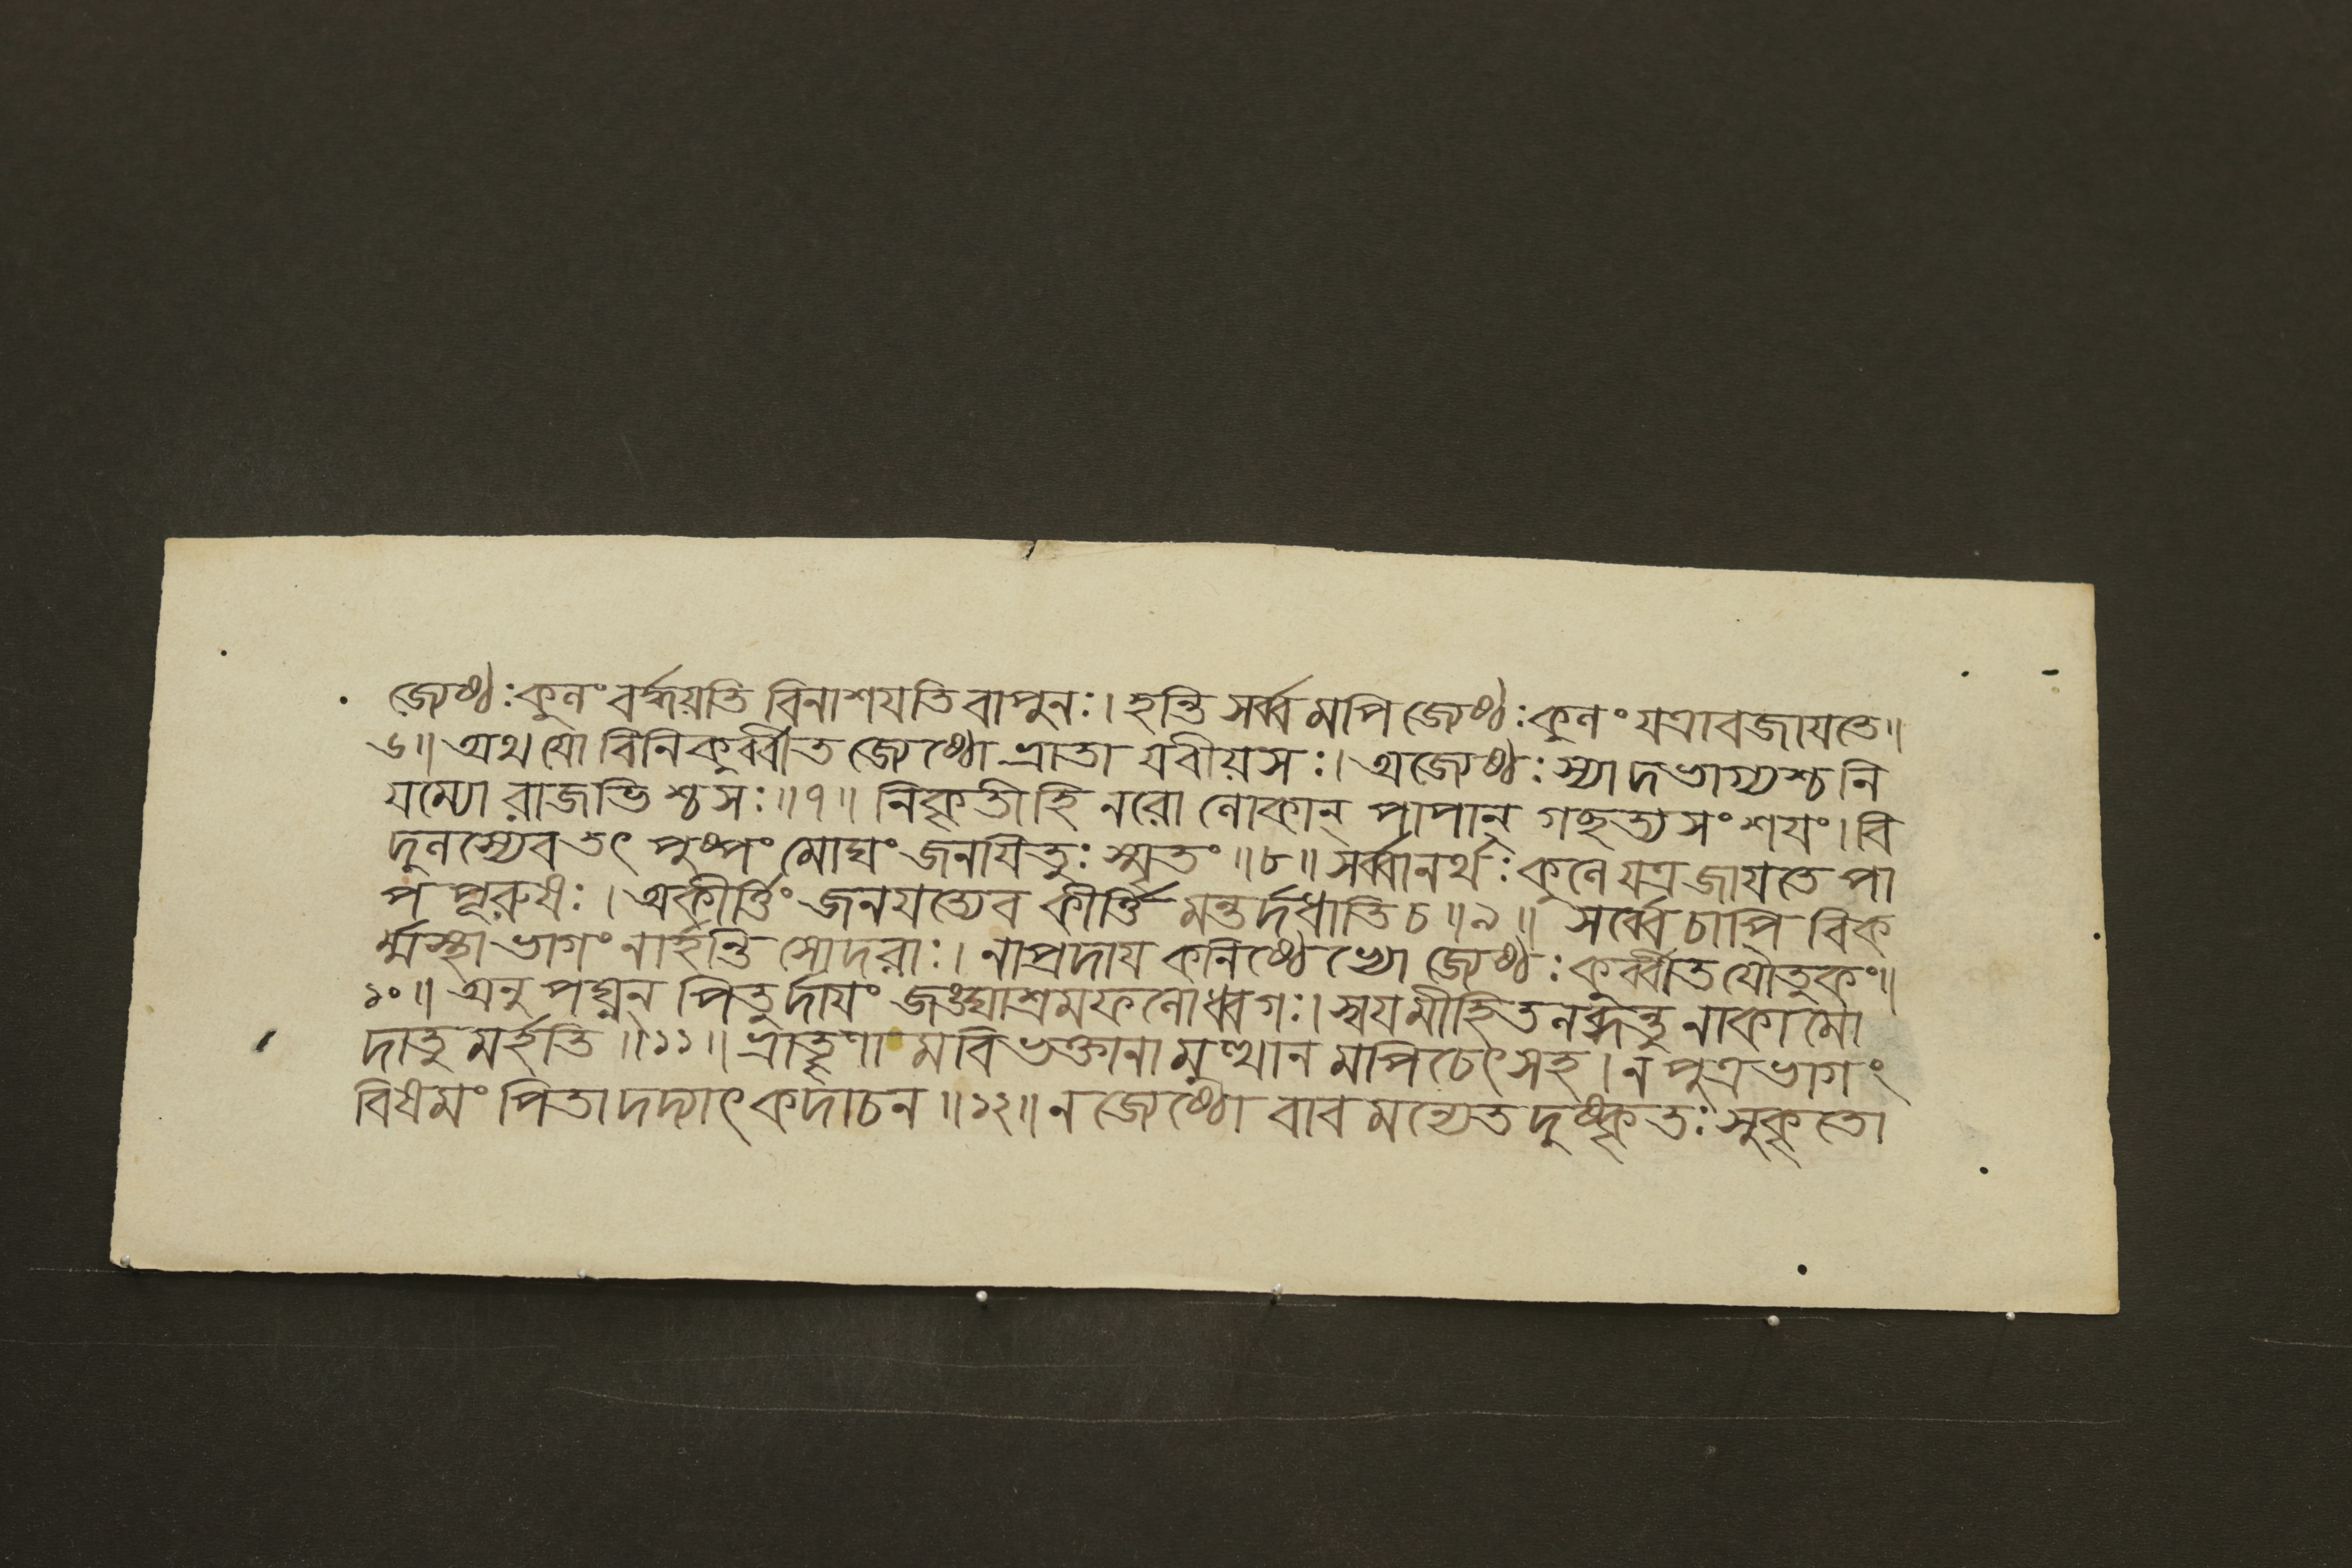 জ্যেষ্ঠঃ কুলং বর্দ্ধয়তি বিনাশযতি বা পুনঃ। হন্তি সর্ব্বমপি জ্যেষ্ঠঃ কুলং যত্রাবজাযতে॥
৬॥ অথ যো বিনিকুর্ব্বীত জ্যেষ্ঠো ভ্রাতা যবীয়সঃ। অজ্যেষ্ঠঃ স্যাদভাগ্যশ্চ নি
যম্যো রাজভিশ্চ সঃ॥৭॥ নিকৃতীহি নরো লোকান্ পাপান্ গচ্ছত্যসংশযং। বি
দুলস্যেব তৎ পুষ্পং মোঘং জনযিতুঃ স্মৃতং॥৮॥ সর্ব্বানর্থঃ কুলে যত্র জাযতে পা
প পূরুষঃ। অকীর্ত্তিং জনযত্যেব কীর্ত্তিমন্তর্দধাতি চ॥৯॥ সর্ব্বে চাপি বিক
র্ম্মস্থা ভাগং নার্হন্তি সোদরাঃ। নাপ্রদায কনিষ্ঠেভ্যো জ্যেষ্ঠঃ কুর্ব্বীত যৌতুকং॥
১০॥ অনুপঘ্নন্ পিতুর্দাযং জঙ্ঘাশ্রমফলোধ্বগঃ। স্বযমীহিতলব্ধন্তু নাকামো
দাতুমর্হতি॥১১॥ ভ্রাতৄণামবিভক্তানামুত্থানমপি চেৎ সহ। ন পুত্রভাগং
বিষমং পিতা দদ্যাৎ কদাচন॥১২॥ ন জ্যেষ্ঠো বাবমন্যেত দুষ্কৃতঃ সুকৃতো